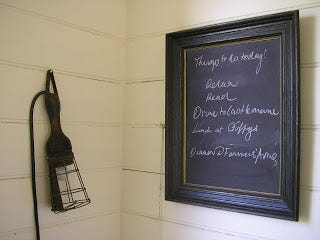 Things to do today!
Relax
Read
Drive to Castlemaine
Lunch at Togs
Dinner @ Farmers Arms